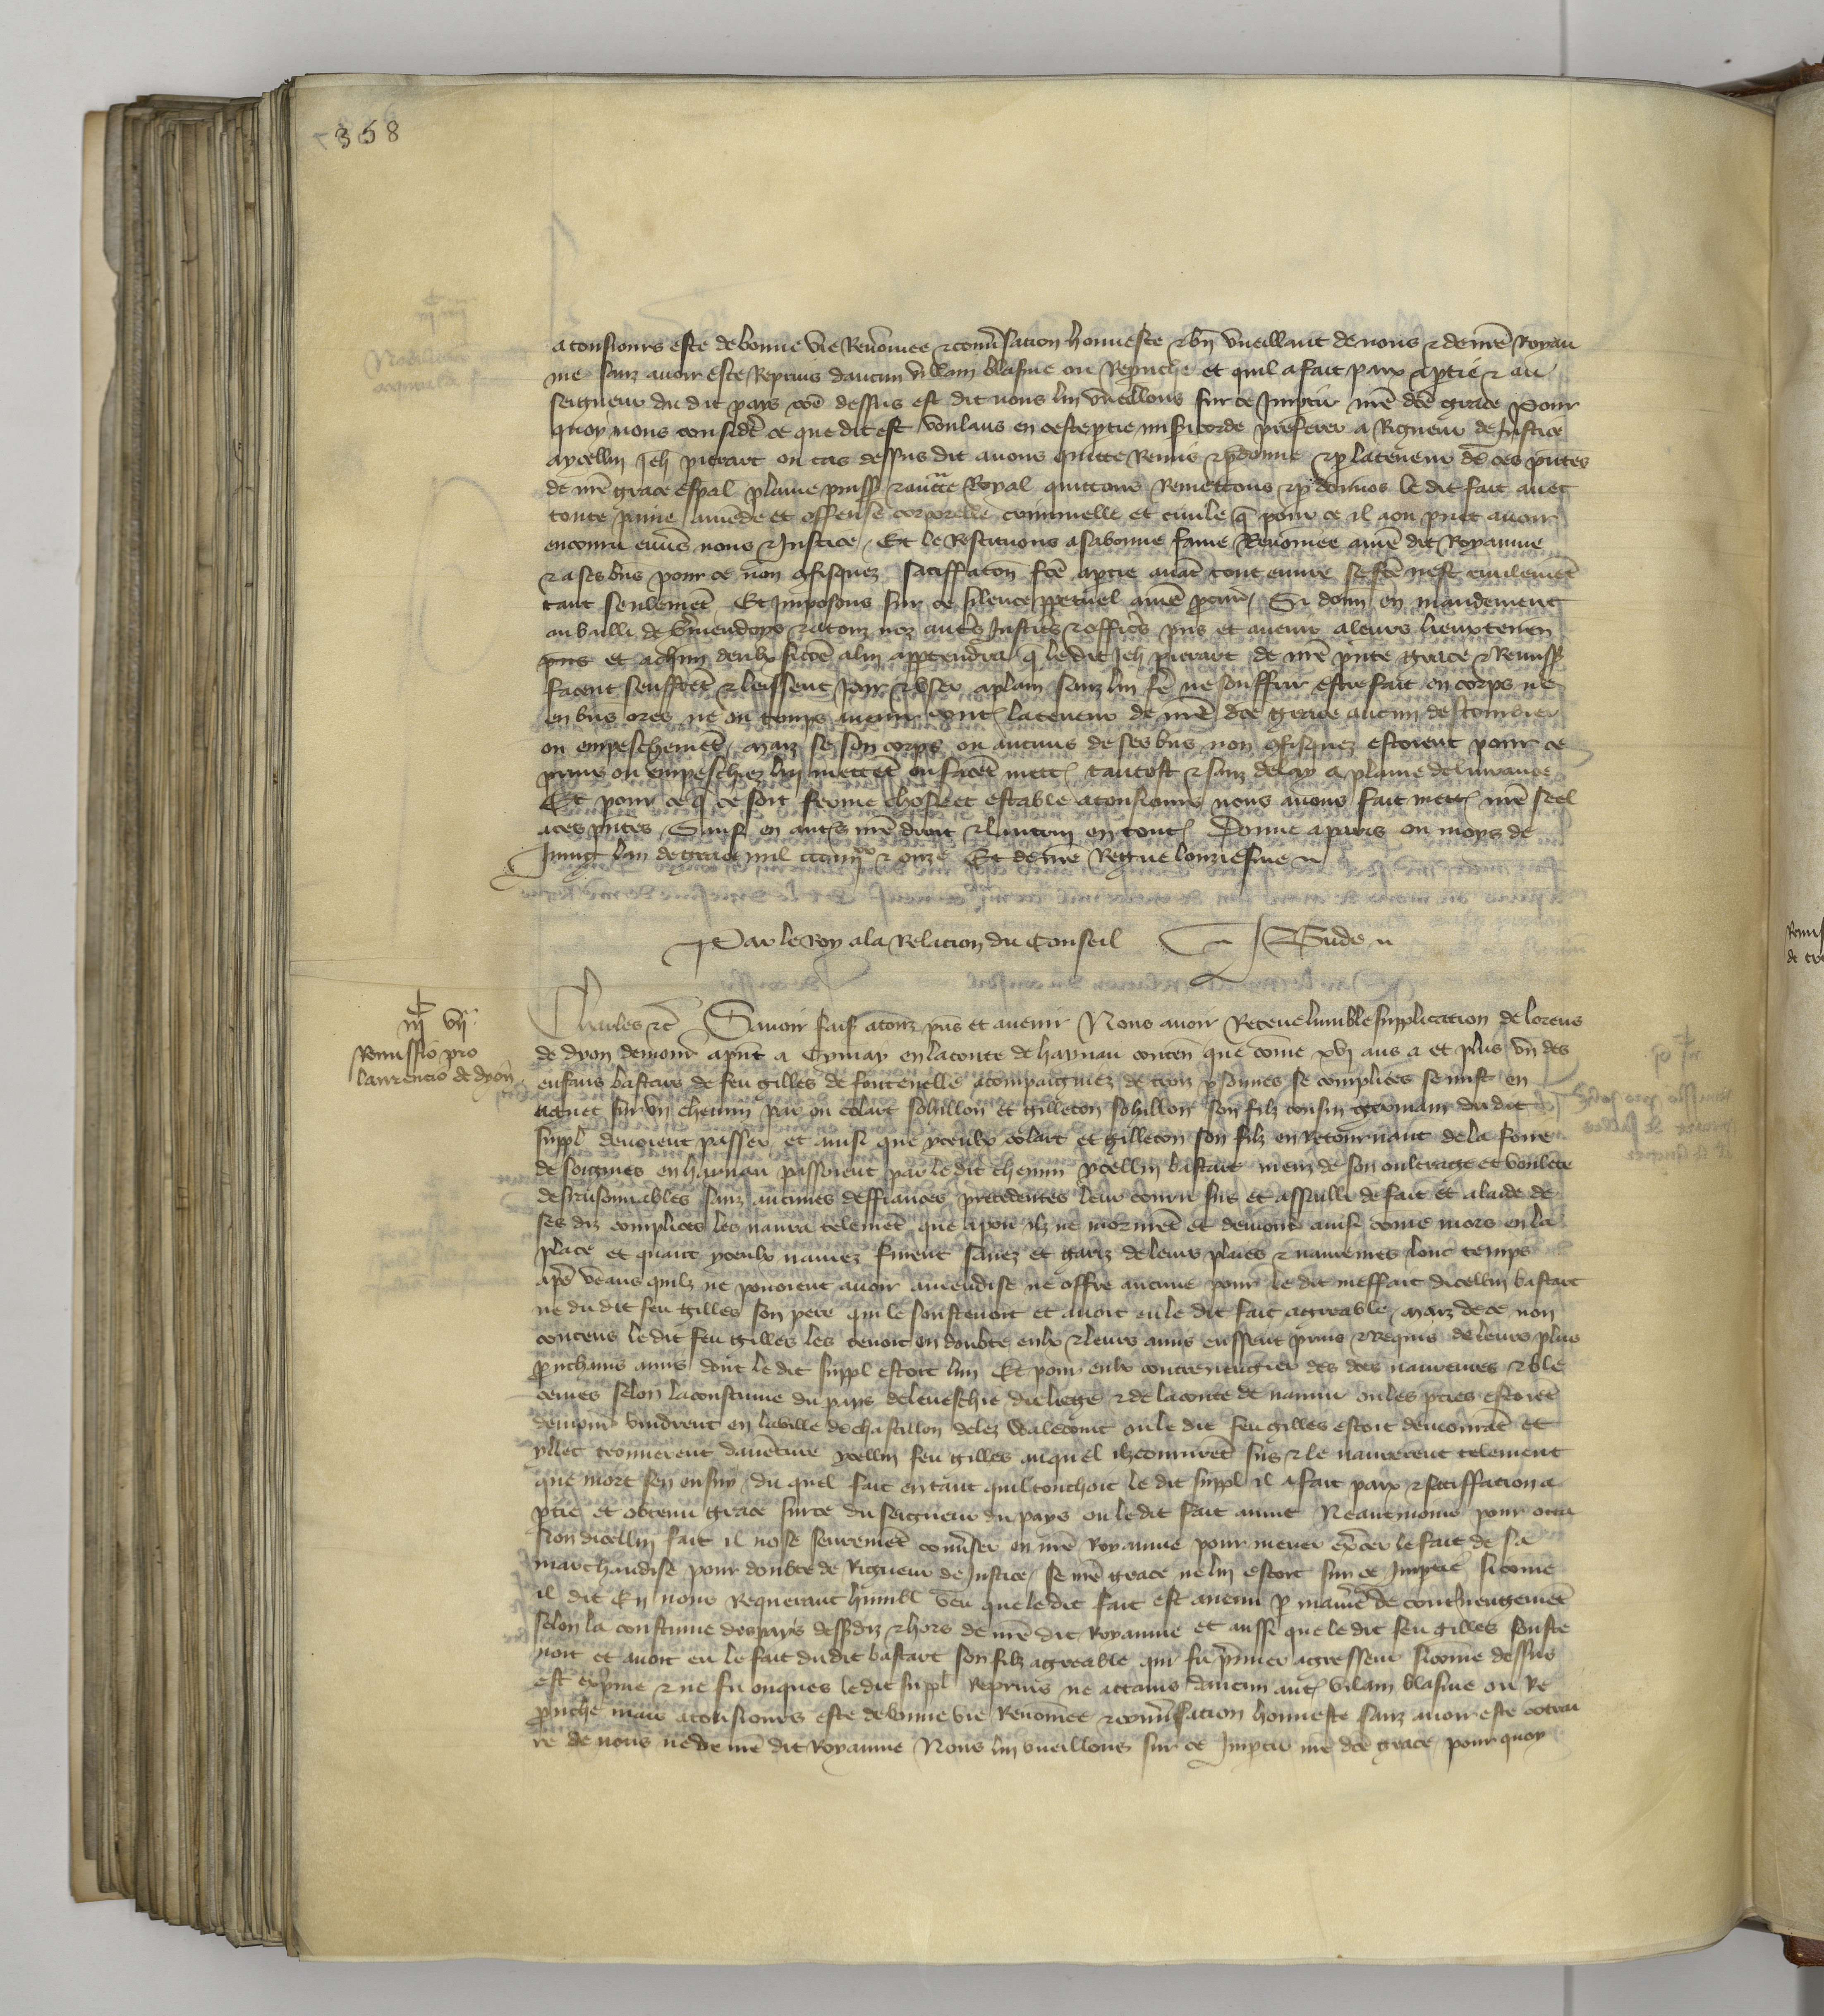 358
a tousiours este de bonne vie Renōmee & conūsacion honneste & bn̄ vueillant de nous & de nr̄e Royau
me sanz auoir este Repruis daucun villain blasme ou Reprouche et quil a fait paix a p̄tie & au
seigneur du dit pays cōe dessus est dit nous lui vueillons sur ce Imptir nr̄e dc̄e grace Pour
quoy nous considēs ce que dit est voulans en ceste p̄tie misericorde preferer a Rigueur de Justice
aycellui Jeh pierart ou cas dessus dit auons quitte Remis & p̄donne & p̄ la teneur de ces pn̄tes
de nr̄e grace esp̄al plaine puiss & auctte Royal quittons Remettons & p̄donnōs le dit fait auec
toute paine amēde et offense corporelle criminelle et ciuile q̄ pour ce il a ou puet auoir
encouru enuēs nous & Justice Et le Restituons a sa bonne fame Renōmee a nr̄e dit Royaume
& a ses bn̄s pour ce non ꝯfisquez satiffacōn fc̄e a p̄tie auāt tout euure se fc̄e nest ciuilemēt
tant seulemēt Et Imposons sur ce silence ppetuel a nr̄e pcur̄ Si donn en mandement
au bailli de Vmendoys & a touz noz autes Justicēs & officēs pn̄s et auenir a leurs lieuxtenen
pn̄s et a chun deulx sicōe a lui appctendra q̄ le dit Jeh pierart de nr̄e pn̄te grace & Remiss
facent seuffrēt & laissent Joir & vser a plain sanz lui fē ne souffrir estre fait en corps ne
en bn̄s ores ne ou temps auenir contr̄ la teneur de nr̄e dc̄e grace aucun destourbier
ou empeschemēt maiz se son corps ou aucuns de ses bn̄s non ꝯfisquez estoient pour ce
prins ou empeschiez lui mettēt ou facēt mettr̄ tantost & sanz delay a plaine deliurance
Et pour ce q̄ ce soit ferme chose et estable a tousiours nous auons fait mettr̄ nr̄e seel
a ces pn̄tes Sauf en autēs nr̄e droit & lautruy en tout̄ Donne a paris ou moys de
Juing lan de grace mil ccciiijxx & onze Et de nr̄e Regne lonziesme

Par le Roy a la Relacion du Conseil J Bude

iij vij
Remissio pro
laurencio de dyon
Charles &c̄ Sauoir faisō a touz pn̄s et auenir Nous auoir Receue lumble supplicacion de lorens
de dyon demour̄ a pn̄t a Cymay en la conte de haynau conten̄ que cōme xvj ans a et plus vn des
enfans bastars de feu gilles de fontenelle acompaigniez de troiz p̄sonnes se complices se mist en
aguet sur vn chemin par ou colart sohillon et gilleton sohillon son filz cousin germain du dit
suppl̄ deuoient passer et ainsi que yceulx colart et gilleton son filz en Retournant de la foire
de soignies en haynau passoient par le dit chemin ycellui bastart meuz de son oultrage et voulēte
desraisonnables sanz aucunes deffiances precedentes leur couru sus et assailli de fait et a laide de
ses diz complices les naura telemēt que a pou ilz ne morurēt et demourēt ainsi come mors en la
place et quant yceulx naurez furent sanez et gariz de leurs plaies & naureures lonc temps
apē veans quilz ne pouoient auoir amendise ne offre aucune pour le dit meffait dicellui bastart
ne du dit feu gilles son pere qui le soustenoit et auoit eu le dit fait agreable Maiz de ce non
contens le dit feu gilles les tenoit en doubte eulx & leurs amis eussent prins & Requis de leurs plus
prouchains amis dont le dit suppl̄ estoit lun Et pour eulx contreuengier des dc̄es naureures & ble
ceures selon la coustume du pays de leueschie du liege & de la conte de namur ou les p̄ties estoiēt
demour̄ vindrent en la ville de chastillon delez Walecourt ou le dit feu gilles estoit demourāt et
yllec trouuerent dauēture ycellui feu gilles auquel ilz coururēt sus & le naurerent telement
que mort sen ensuy du quel fait en tant quil touchoit le dit suppl̄ il a fait paix & satiffacion a
p̄tie et obtenu grace sur ce du seigneur du pays ou le dit fait auint Neantmoins pour occa
sion dicellui fait il nose seurement conūser en nr̄e Royaume pour mener & excer le fait de sa
marchandise pour doubte de Rigueur de Justice se nr̄e grace ne lui estoit sur ce Imptie sicome
il dit En nous Requerant humbl̄ veu que le dit fait est auenu p̄ manier̄ de contreuengemēt
selon la coustume des pays dessdiz & hors de nr̄e dit Royaume et aussi que le dit feu gilles souste
noit et auoit eu le fait du dit bastart son filz agreable qui fu p̄mier agresseur sicōme dessus
est expīme & ne fu onques le dit suppl̄ Repruis ne attains daucun autr̄ vilain blasme ou Re
prouche mais a tousiours este de bonne vie Renōmee & conūsacion honneste sanz auoir este cōtrai
re de nous ne de nr̄e dit Royaume Nous lui vueillons sur ce Imptir nr̄e dc̄e grace pour quoy